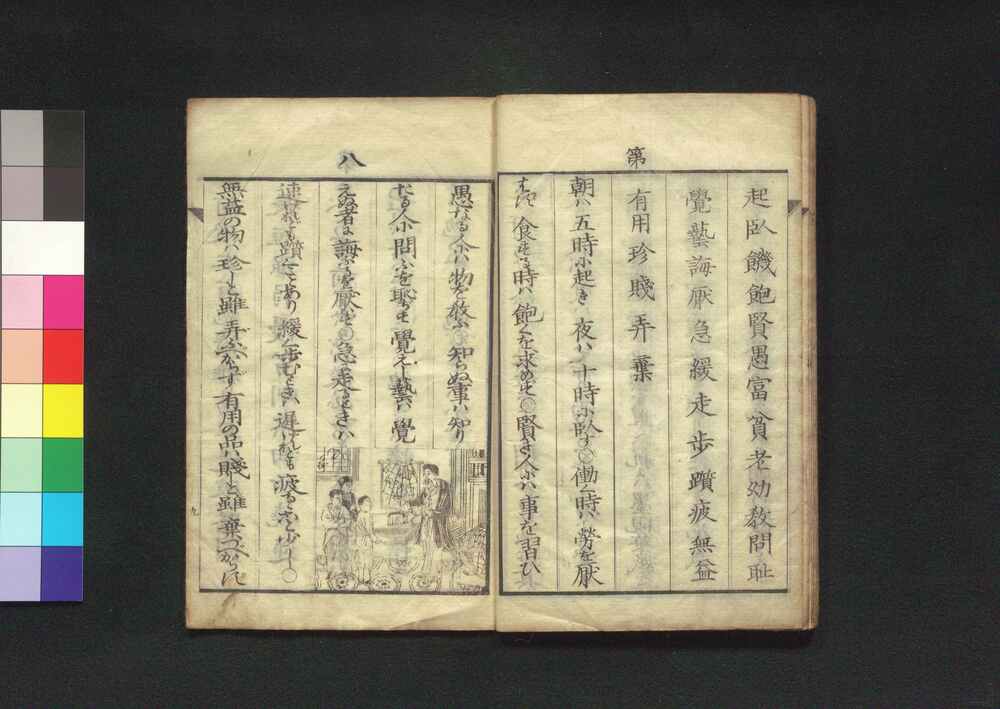 第
起臥饑飽賢愚富貧老幼教問耻
覺藝誨厭急緩走歩躓疲無益
有用珍賤弄棄
朝ハ五時に起き夜ハ十時に臥す○働く時ハ勞を厭
はず食する時ハ飽くを求めず○賢き人にハ事を習ひ
八
愚なる人にハ物を教ふ○知らぬ事ハ知り
たる人に問ふを恥ぢず覺えし藝ハ覺
えぬ者に誨ふるを厭はず○急ぎ走るときハ
速なれども躓くことあり緩く歩むときハ遅けれども疲るゝこと少し○
無益の物ハ珍しと雖弄ぶべからず有用の品ハ賤しと雖棄つべからず
九